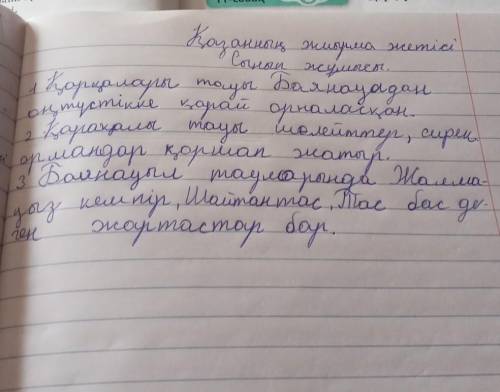 Қазанның жиырма жетісі
Сынып жұмысы.
1 Қарқалары тауы Баянауадан
оңтүстікке қарай орналасқан.
2 Қарақалы тауы шөлейттер, сирек
ормандар қоршап жатыр.
3 Баянауыл тауларында Жалма-
уыз кемпір, Шайтантас, Тас бас де-
ген жартастар бар.